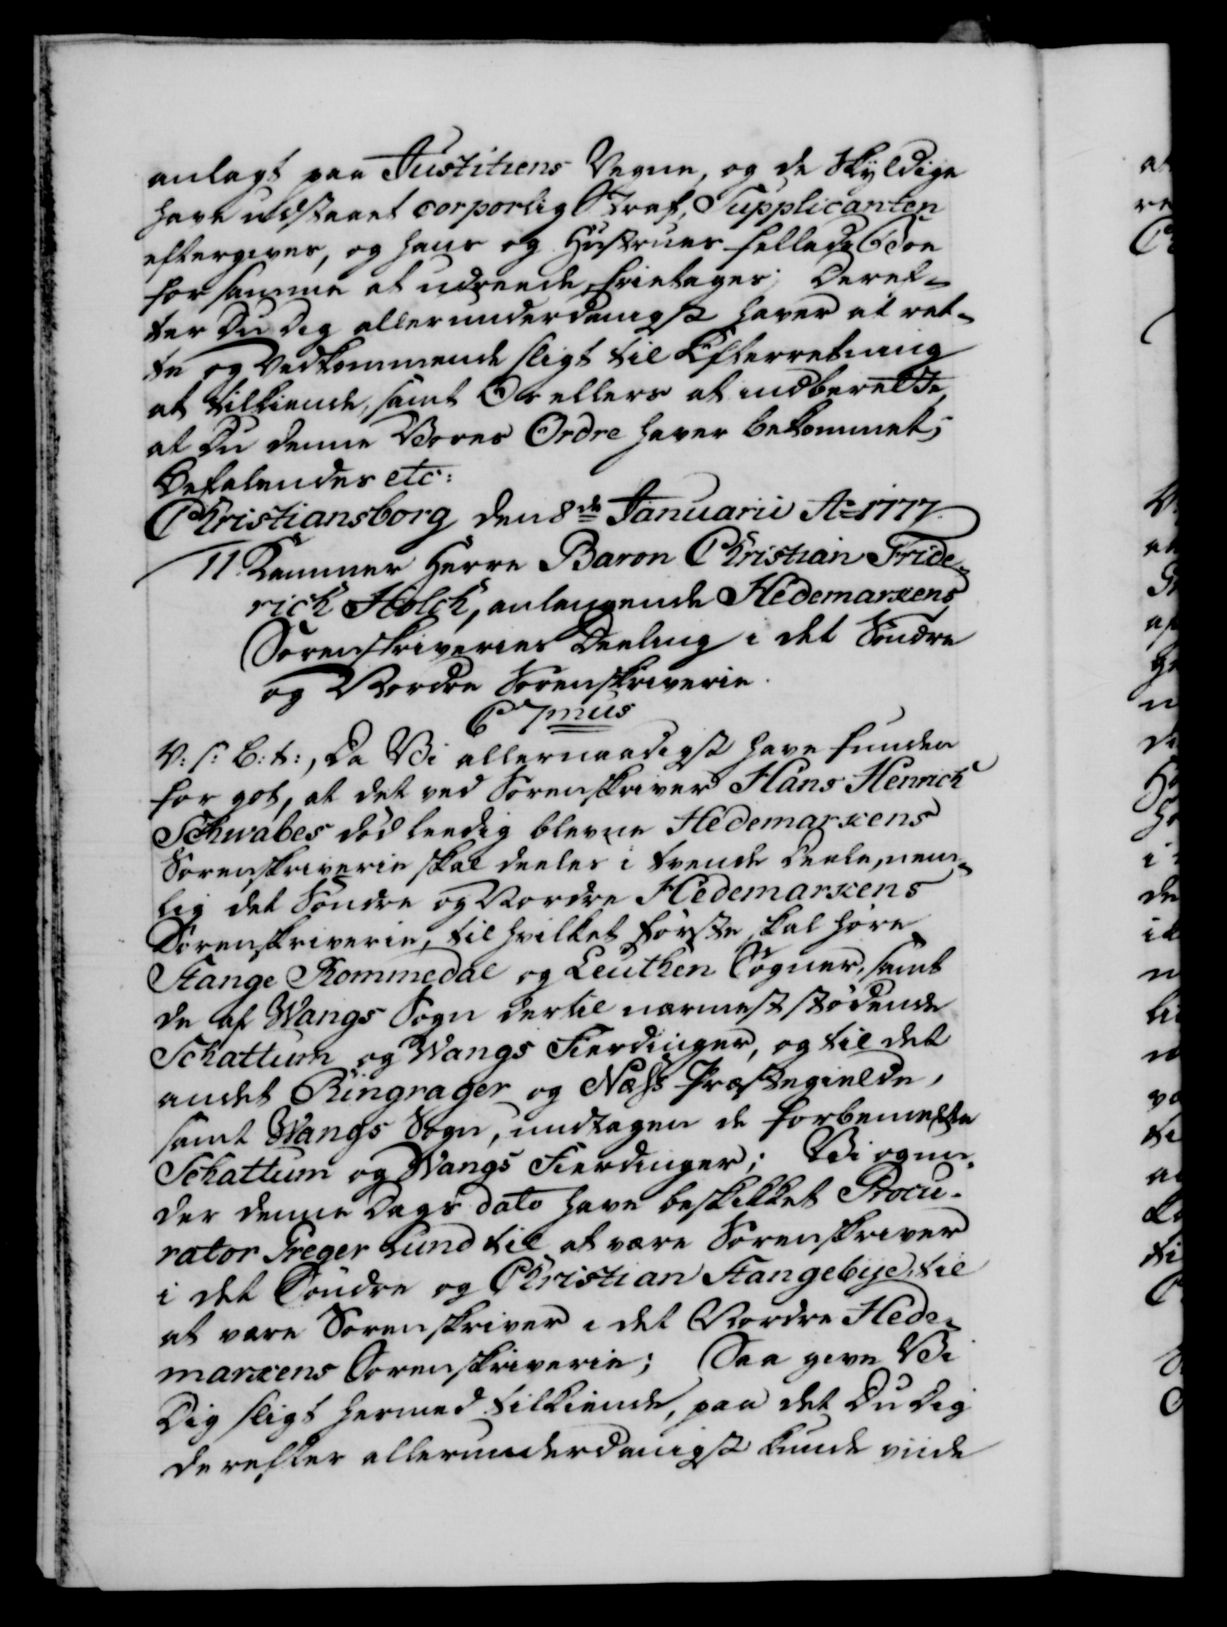 anlagt paa Justitiens Vegne, og de Skyldige
have udstaaet corporlig Straf, Supplicanten
eftergives, og hans og Hustrues fælleds Boe
for samme at udreede, frietages; Deref-
ter Du Dig allerunderdanigst haver at ret-
te og Vedkommende sligt til Efterretning
at tilkiende, samt Os ellers at indberette,
at Du denne Vores Ordre haver bekommet;
Befalendes etc:
Christiansborg den 8de Januarii Ao 1777.
11. Kammer Herre Baron Christian Fride-
rich Holck, anlangende Hedemarkens
Sorenskriveries Deeling i det Søndre
og Nordre Sorenskriverie.
C 7mus
V: s: B: t:, Da Vi allernaadigst have funden
for got, at det ved Sorenskriver Hans Henrich
Schwabes død leedig blevne Hedemarkens
Sorenskriverie skal deeles i tvende Deele, nem-
lig det Søndre og Nordre Hedemarkens
Sorenskriverie, til hvilket første skal høre
Stange Rommedal og Leuthen Sogner, samt
de af Wangs Sogn dertil nærmest stødende
Schattum og Wangs Fierdinger, og til det
andet Ringsager og Næss Præstegielde,
samt Wangs Sogn, undtagen de forbemelte
Schattum og Wangs Fierdinger; Vi og un-
der denne Dags dato have beskikket Procu-
rator Preger Lund til at være Sorenskriver
i det Søndre og Christian Stangebye til
at være Sorenskriver i det Nordre Hede-
markens Sorenskriverie; Saa give Vi
Dig sligt hermed tilkiende, paa det Du Dig
derefter allerunderdanigst kunde viide